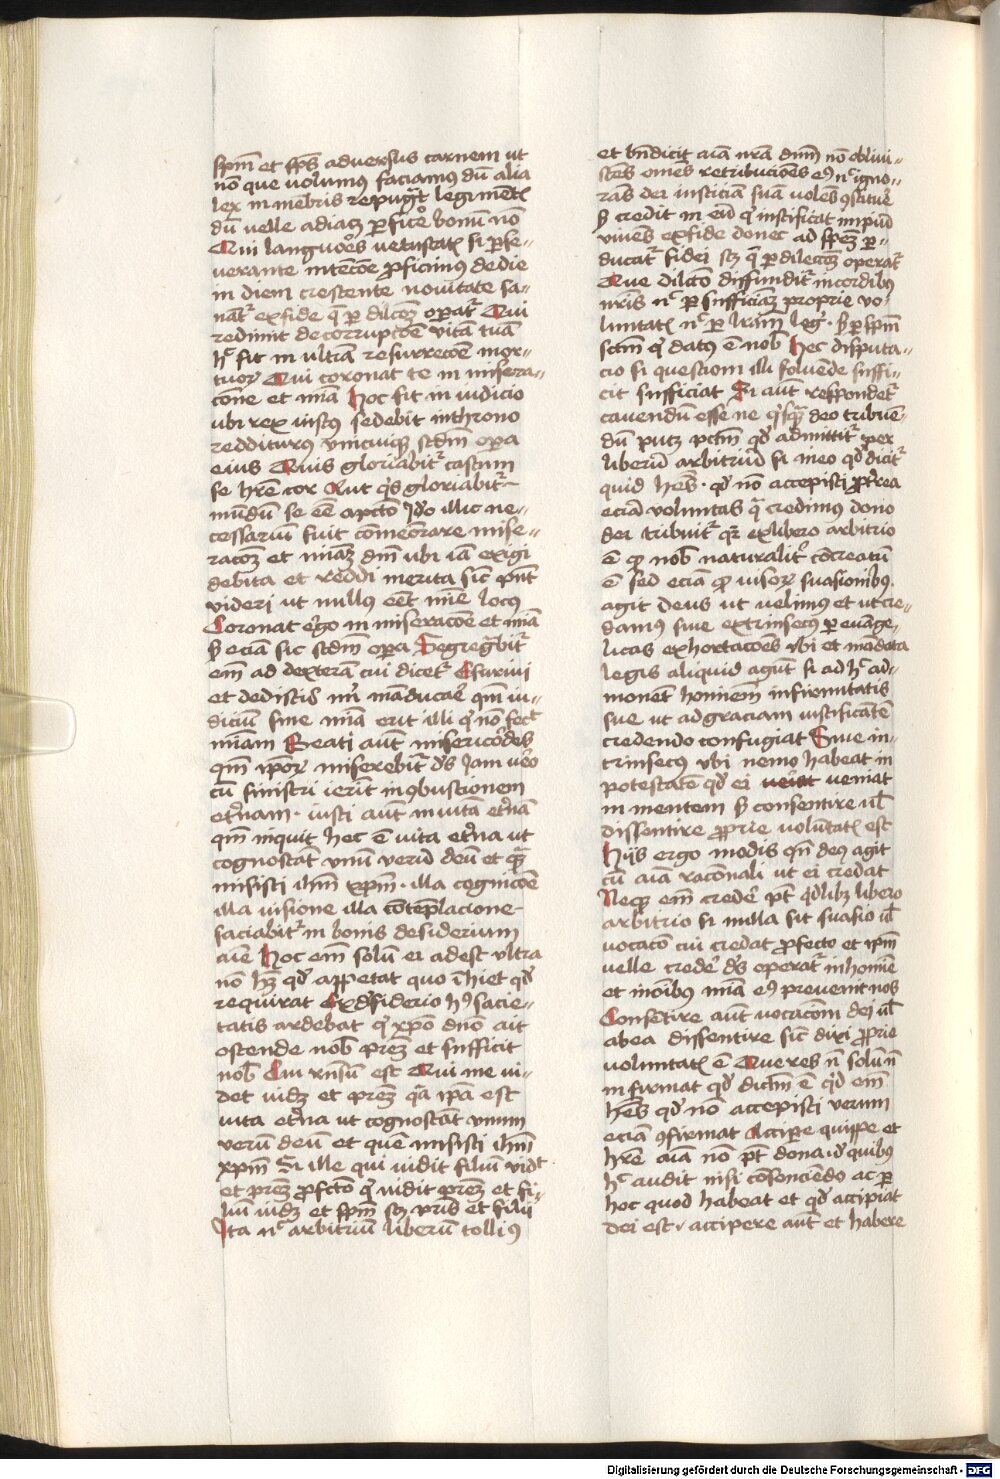 spm̄ et sps̄ adversus carnem ut
nō que volumus faciamus dū alia
lex in mēbris repugn̄t legi mēt᷒
dū velle adiac᷒ p̲fic̄e bonū nō
Qui languōes vetustat᷒ si p̲se-
verante intēcōe p̲ficimus de die
in diem crescente novitate sa-
nat᷑ ex fide q̄ p̲ dilcōꝫ op̲at᷑ Qui
redimit de corrupcōe vitā tuā
hͨ fit in ultīa resurreccōe mor-
tuoꝝ Qui coronat te in misera-
cōne et mīa Hoc fit in iudicio
ubi rex iust9 sedebit in throno
redditurus unicuiqꝫ scdm̄ op̲a
eius Quis gloriabit᷑ castum
se hr̄e cor Aut q̇s gloriabit᷑
mūdū se eē a pctō Iđo illic ne-
cessariū fuit cōmēorare mise-
racōꝫ et mīaꝫ dnī ubi iā exigi
debita et reddi merita sic pn̄t
videri ut null9 eēt mīe loc9
Coronat ergo in miseracōe et mīa
sꝫ eciā sic scdm̄ op̲a Segregabit᷑
em̄ ad dexterā cui dicet᷑ Esurivi
et dedistis m̄ māducar̄ qm̄ iu-
diciū sine mīa erit illi q̇ nō fecͭ
mīam Beati aūt misericordes
qm̄ ip̄oꝝ miserebit᷑ ds̄ Iam vero
cū sinistri ierīt in ꝯbustionem
et̄nam · iusti aūt in vitā et̄nā
qm̄ inquit hec ē vita et̄na ut
cognoscāt te unū verū deū et quē
misisti ihm̄ xpm̄ · illa cognicōe
illa visione illa cōtēplacione
saciabit᷑ in bonis desiderium
aīe Hoc em̄ solū ei adest ultra
nō hꝫ qđ appetat quo īhiet qđ
requirat Ex đsiderio h9 sacie-
tatis ardebat q̇ xp̄o dn̄o ait
ostende nob̄ prēꝫ et sufficit
nob̄ Cui rn̄sū est Qui me vi-
det videt et prēꝫ q̄a ip̄a est
vita et̄na ut cognoscāt unum
verū deū et quē misisti ihm̄
xpm̄ Si ille qui vidit filiū vidͭ
et prēꝫ p̲fcto q̇ vidit prēꝫ et fi-
liū videt et spm̄ scꝫ pr̄is et filii
Ita nͨ arbitriū liberū tollim9
et bn̄dicit aīa nr̄a dnm̄ nō oblivi-
scēs om̄es retribucōes ei9 nͨ igno-
rās dei iusticiā suā volēs ꝯstitue᷑
sꝫ credit in eū q̇ iustificat impiū
vivēs ex fide donec ad spēꝫ p̲-
ducat᷑ fidei scꝫ q̄ p̲ dilectōꝫ operat᷑
Que dilctō diffundit᷑ in cordibus
nr̄is nͨ p̲ sufficiāꝫ proprie vo-
luntat᷒ nͨ p̲ lr̄am leg᷒ · sꝫ p̲ spm̄
sctm̄ q̇ dat9 ē nob̄ Hec disputa-
cio si questiōī illi solvēde suffi-
cit sufficiat Si aūt respondet᷑
cavendū esse ne q̇sꝗ̄ deo tribuē-
dū putꝫ pctm̄ qđ admittit᷑ per
liberū arbitriū si in eo qđ dicit᷑
quid hēs · qđ nō accepisti propt̄ea
eciā voluntas q̄ credimus dono
dei tribuit᷑ qꝛ ex libero arbitrio
ē qđ nob̄ naturalit̄ cōcreatū
ē sed eciā qđ visoꝝ suasionib9
agit deus ut velim9 et ut cre-
dam9 sive extrinsec9 p̲ evāge-
licas exhortacōes ubi et mādata
legis aliquid agūt si ad hͨ ad-
monēt hominem infirmitatis
sue ut ad graciam iustificātē
credendo confugiat Sive in-
trinsecus ubi nemo habeat in
potestatē qđ ei veniat
in mentem sꝫ consentire ul̄
dissentire proprie volūtat᷒ est
Hiis ergo modis qn̄ de9 agit
cū aīa racōnali ut ei credat
Neqꝫ em̄ crede᷑ pt̄ q̇dlibꝫ libero
arbitrio si nulla sit suasio ul̄
vocacō cui credat profecto et ip̄m
velle crede᷑ ds̄ operat᷑ in homīe
et in oībus mīa ei9 prevenit nos
Consētire aūt vocacōni dei ul̄
ab ea dissentire sic̄ dixi proprie
voluntat᷒ ē Que res n̄ solū n̄
infirmat qđ dictum ē q̇d em̄
hēs qđ nō accepisti verum
eciā ꝯfirmat Accipe᷑ quippe et
hr̄e aīa nō pt̄ dona đ quibus
hͨ audit nisi cōsenciēdo ac p̲
hoc quod habeat et qđ accipiat
dei est · accipere aūt et habere
Digitalisierung gefördert durch die Deutsche Forschungsgemeinschaft - DFG